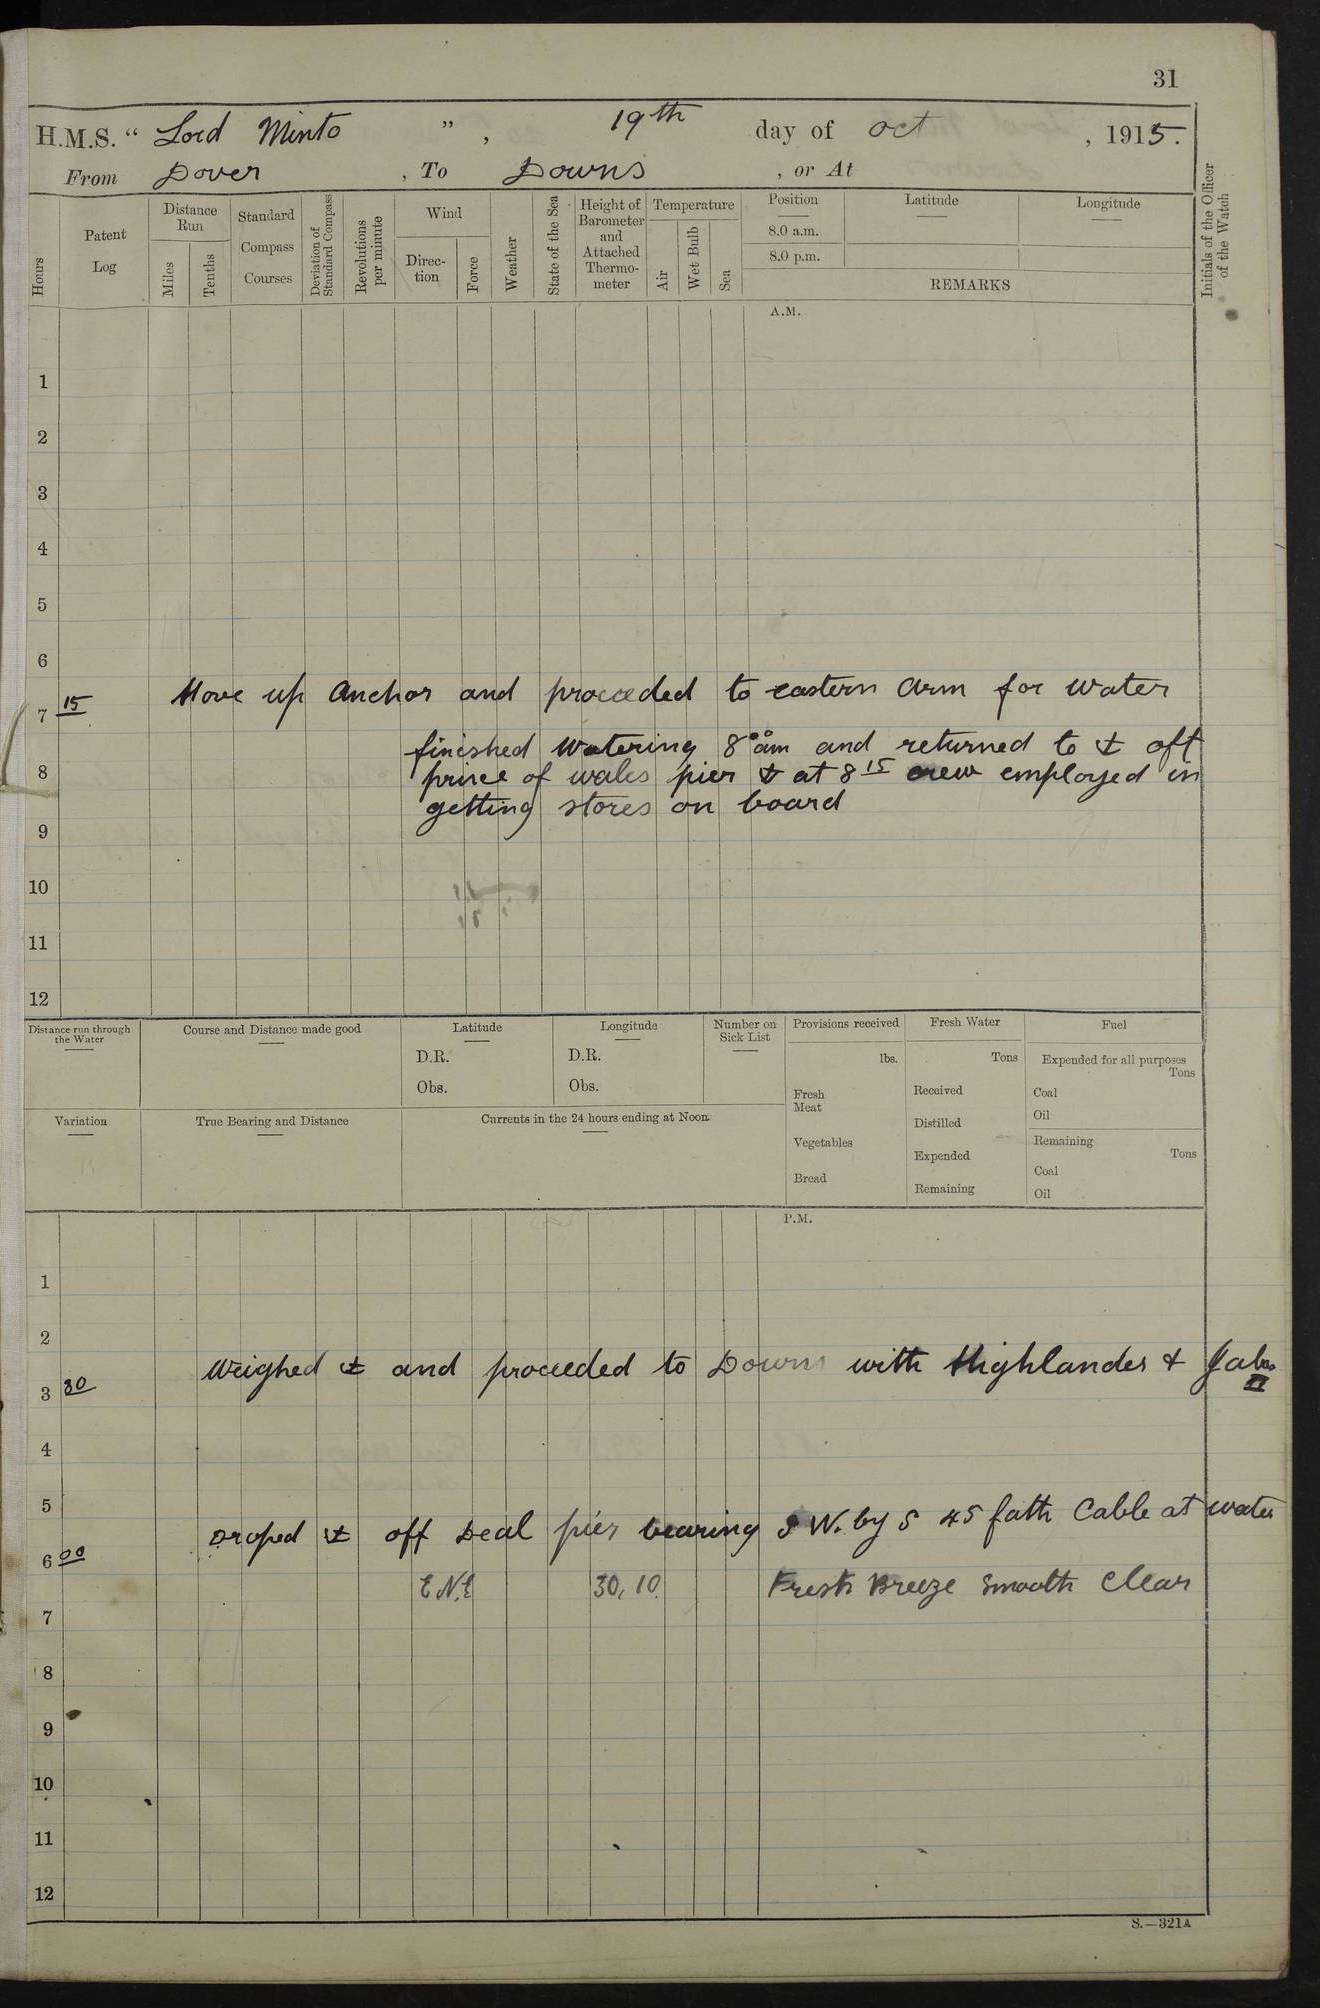 31
H.M.S. " Lord Minto ", 19th day of Oct , 1915.
From Dover , To Downs , or At
Hours
Patent Log
Distance Run
Miles
Tenths
Standard Compass Courses
Deviation of Standard Compass
Revolutions per minute
Wind
Direction
Force
Weather
State of the Sea
Height of Barometer and Attached Thermometer
Temperature
Air
Wet Bulb
Sea
Position
8.0 a.m.
8.0 p.m.
Latitude
Longitude
REMARKS
Initials of the Officer of the Watch
A.M.
1
2
3
4
5
6
7 15 Hove up anchor and proceeded to eastern arm for water
finished watering 8°° am and returned to ⚓ off
8 prince of wales pier ⚓ at 8 15 crew employed in
getting stores on board
9
10
11
12
Distance run through the Water
Course and Distance made good
Latitude
D.R.
Obs.
Longitude
D.R.
Obs.
Number on Sick List
Provisions received
lbs.
Fresh Meat
Vegetables
Bread
Fresh Water
Tons
Received
Distilled
Expended
Remaining
Fuel
Expended for all purposes
Tons
Coal
Oil
Remaining
Tons
Coal
Oil
Variation
True Bearing and Distance
Currents in the 24 hours ending at Noon.
P.M.
1
2
3 30 Weighed ⚓ and proceeded to Downs with Highlander +
II
4
5
6 00 Droped ⚓ off Deal pier bearing S W. by S 45 fath Cable at water
E N.E 30,10. Fresh Breeze Smooth Clear
7
8
9
10
11
12
S.—321A